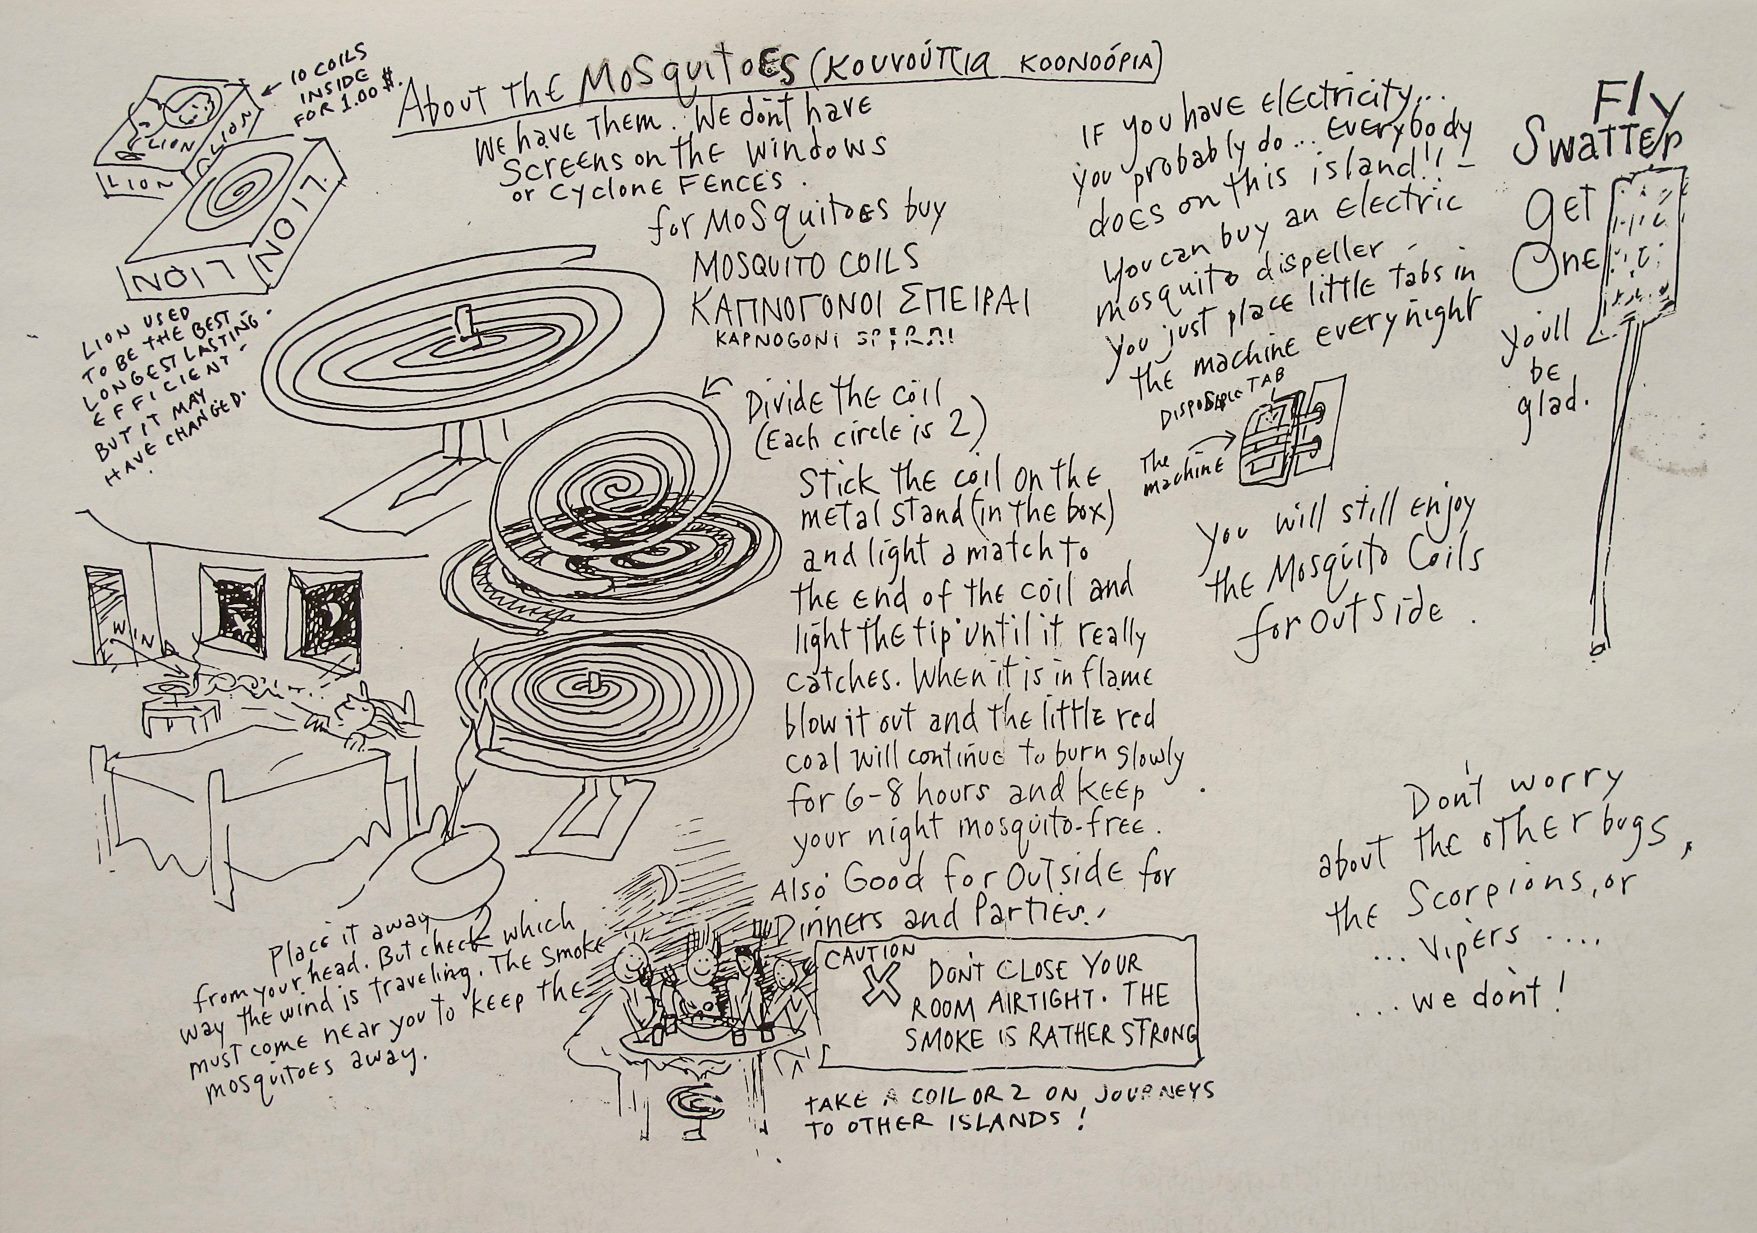 About the Mosquitoes (κουνούπια κοονοόρια)
10 COILS
INSIDE
FOR 1.00 $.
LION
LION
LION
LION
LION
We have Them. We don't have
Screens on the windows
or Cyclone Fences.
for Mosquitoes buy
MOSQUITO COILS
ΚΑΠΝΟΓΟΝΟΙ ΣΠΕΙΡΑΙ
KAPNOGONI
LION USED
TO BE THE BEST -
LONGEST LASTING -
EFFICIENT -
BUT IT MAY
HAVE CHANGED.
Divide the coil
(Each circle is 2)
Stick the coil on the
metal stand (in the box)
and light a match to
the end of the coil and
light the tip until it really
catches. When it is in flame
blow it out and the little red
coal will continue to burn slowly
for 6-8 hours and keep
your night mosquito-free.
Also Good for Outside for
Dinners and Parties.
WIND
Place it away
from your head. But check which
way the wind is traveling. The smoke
must come near you to keep the
mosquitoes away.
CAUTION
X DON'T CLOSE YOUR
ROOM AIRTIGHT. THE
SMOKE IS RATHER STRONG
TAKE A COIL OR 2 ON JOURNEYS
TO OTHER ISLANDS!
IF you have electricity...
you probably do... Everybody
does on this island!! -
you can buy an electric
mosquito dispeller
you just place little tabs in
the machine every night
DISPOSABLE TAB
The
machine
You will still enjoy
the Mosquito Coils
for outside.
Fly
Swatter
get
One
you'll
be
glad.
Don't worry
about the other bugs,
the Scorpions, or
... Vipers ....
... we don't!